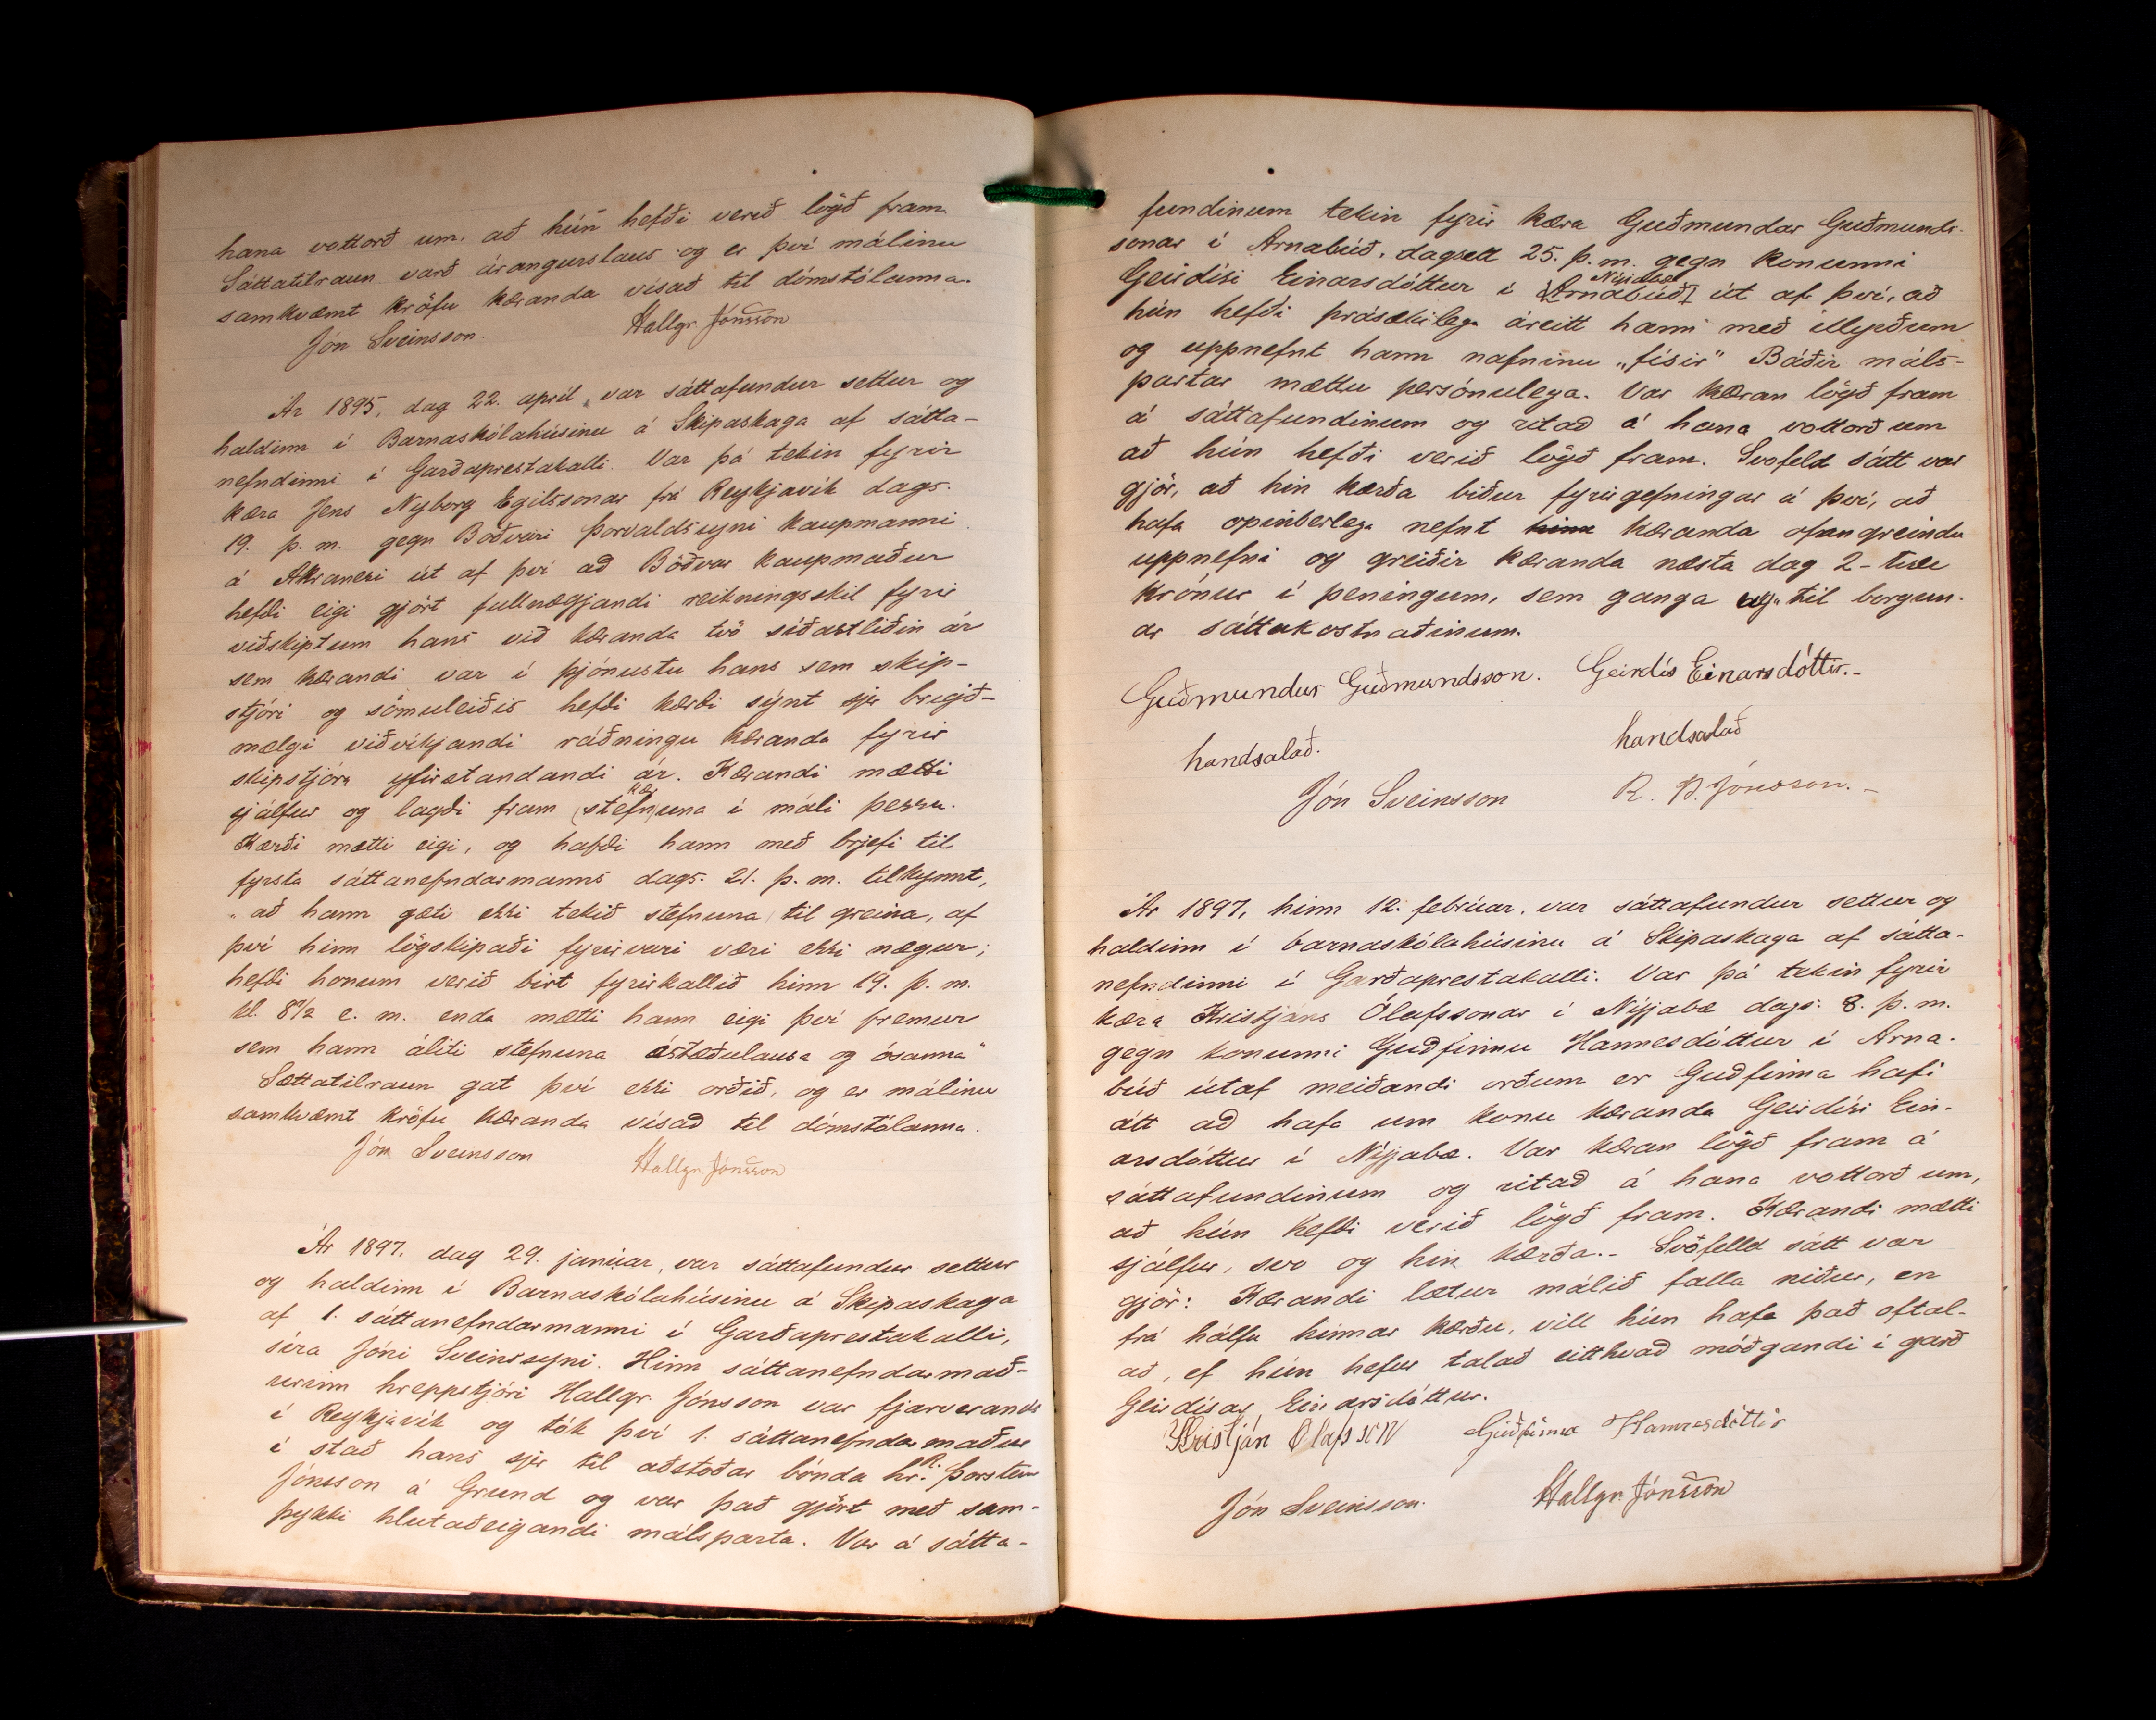 hana vottorð um, að hún hefði verið lögð fram.
Sáttatilraun varð árangurslaus og er því málinu
samkvæmt kröfu kæranda vísað til dómstólanna.
Jón Sveinsson. Hallgr. Jónsson
Ár 1895, dag 22. apríl, var sáttafundur settur og
haldinn í Barnaskólahúsinu á Skipaskaga af sátta-
nefndinni í Garðaprestakalli. Var þá tekin fyrir
kæra Jens Nyborg Egilssonar frá Reykjavík dags.
19. þ. m. gegn Böðvari Þorvaldssyni kaupmanni
á Akranesi út af því að Böðvar kaupmaður
hefði eigi gjört fullnægjandi reikningsskil fyrir
viðskiptum hans við kæranda tvö síðastliðin ár
sem kærandi var í þjónustu hans sem skip-
stjóri og sömuleiðis hefði kærði sýnt sjer brigð-
mælgi viðvíkjandi ráðningu kæranda fyrir
skipstjóra yfirstandandi ár. Kærandi mætti
sjálfur og lagði fram (stefn)una kær í máli þessu.
Kærði mætti eigi, og hafði hann með brjefi til
fyrsta sáttanefndarmanns dags. 21. þ. m. tilkynnt,
„að hann gæti ekki tekið stefnuna til greina, af
því hinn lögskipaði fyrirvari væri ekki nægur;
hefði honum verið birt fyrirkallið hinn 19. þ. m.
kl. 8 1/2 e. m. enda mætti hann eigi því fremur
sem hann áliti stefnuna ástæðulausa og ósanna"
Sættatilraun gat því ekki orðið, og er málinu
samkvæmt kröfu kæranda vísað til dómstólanna.
Jón Sveinsson Hallgr. Jónsson
Ár 1897, dag 29. janúar, var sáttafundur settur
og haldinn í Barnaskólahúsinu á Skipaskaga
af 1. sáttanefndarmanni í Garðaprestakalli,
síra Jóni Sveinssyni. Hinn sáttanefndarmað-
urinn hreppstjóri Hallgr. Jónsson var fjarverandi
í Reykjavík og tók því 1. sáttanefndarmaður
í stað hans sjer til aðstoðar bónda hr. R. Þorstein
Jónsson á Grund og var það gjört með sam-
þykki hlutaðeigandi málsparta. Var á sátta-
fundinum tekin fyrir kæra Guðmundar Guðmunds-
sonar í Arnabúð, dagsett 25. þ. m. gegn konunni
Geirdísi Einarsdóttur í [Arnabúð] Nýjabæ út af því, að
hún hefði þrásækilega áreitt hann með illyrðum
og uppnefnt hann nafninu „físir" Báðir máls-
partar mættu persónulega. Var kæran lögð fram
á sáttafundinum og ritað á hana vottorð um
að hún hefði verið lögð fram. Svofeld sátt var
gjör, að hin kærða biður fyrirgefningar á því, að
hafa opinberlega nefnt hinn kæranda ofangreindu
uppnefni og greiðir kæranda næsta dag 2 - tvær
krónur í peningum, sem ganga til borgun-
ar sáttakostnaðinum.
Guðmundur Guðmundsson. Geirdís Einarsdóttir.-
handsalað. handsalað
Jón Sveinsson R. Þ. Jónsson. -
Ár 1897, hinn 12. febrúar, var sáttafundur settur og
haldinn í barnaskólahúsinu á Skipaskaga af sátta-
nefndinni í Garðaprestakalli. Var þá tekin fyrir
kæra Kristjáns Ólafssonar í Nýjabæ dags. 8. þ. m.
gegn konunni Guðfinnu Hannesdóttur í Arna-
búð útaf meiðandi orðum er Guðfinna hafi
átt að hafa um konu kæranda Geirdísi Ein-
arsdóttur í Nýjabæ. Var kæran lögð fram á
sáttafundinum og ritað á hana vottorð um,
að hún hefði verið lögð fram. Kærandi mætti
sjálfur, svo og hin kærða.- Svofelld sátt var
gjör: Kærandi lætur málið falla niður, en
frá hálfu hinnar kærðu, vill hún hafa það oftal-
að, ef hún hefur talað eitthvað móðgandi í garð
Geirdísar Einarsdóttur.
Kristján Olafsson Guðfinna Hannesdóttir
Jón Sveinsson. Hallgr. Jónsson